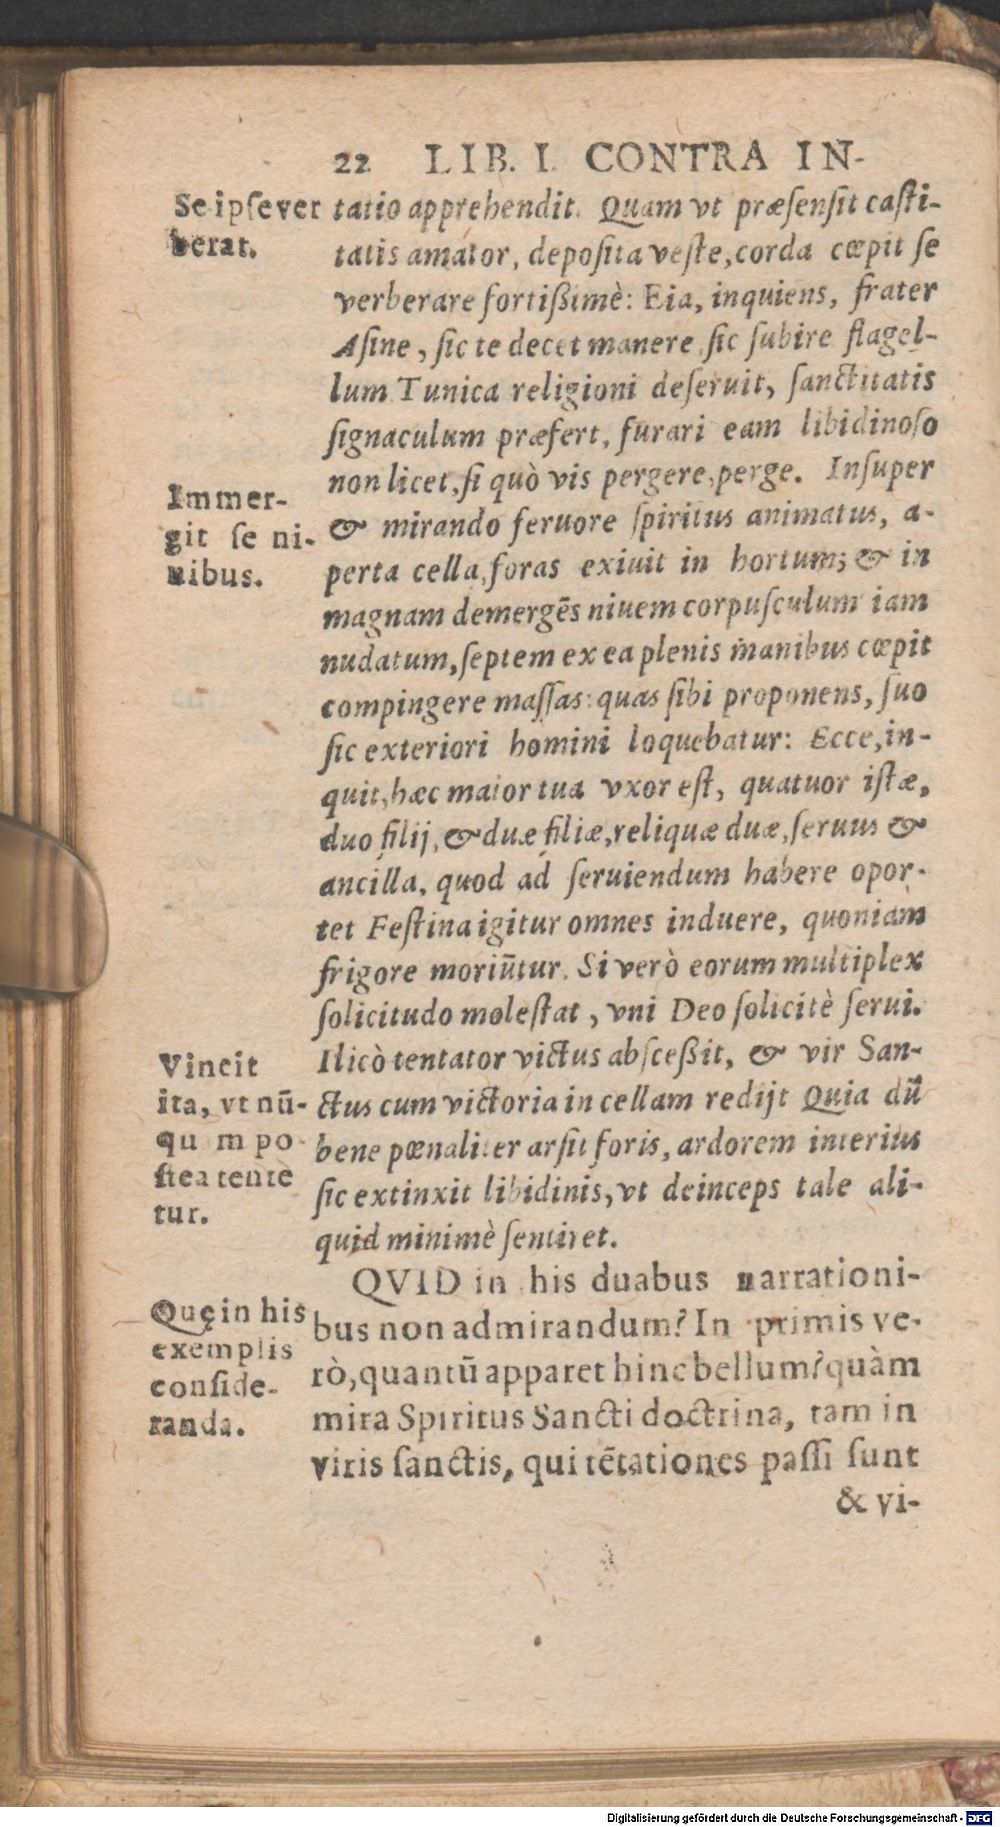 22 LIB. I. CONTRA IN-
Se ipſe ver
berat.
tatio apprehendit. Quam vt præſenſit caſti-
tatis amator, depoſita veſte, corda cœpit ſe
verberare fortißimè: Eia, inquiens, frater
Aſine, ſic te decet manere, ſic ſubire flagel-
lum Tunica religioni deſeruit, ſanctitatis
ſignaculum præfert, furari eam libidinoſo
non licet, ſi quò vis pergere, perge. Inſuper
Immer-
git ſe ni-
uibus.
& mirando feruore ſpiritus animatus, a-
perta cella, foras exiuit in hortum; & in
magnam demergēs niuem corpuſculum iam
nudatum, ſeptem ex ea plenis manibus cœpit
compingere maſſas: quas ſibi proponens, ſuo
ſic exteriori homini loquebatur: Ecce, in-
quit, hæc maior tua vxor eſt, quatuor iſtæ,
duo filij, & duæ filiæ, reliquæ duæ, ſeruus &
ancilla, quod ad ſeruiendum habere opor-
tet Feſtina igitur omnes induere, quoniam
frigore moriūtur. Si verò eorum multiplex
ſolicitudo moleſtat, vni Deo ſolicitè ſerui.
Vincit
ita, vt nū-
qu m po
ſtea tente
tur.
Ilicò tentator victus abſceßit, & vir San-
ctus cum victoria in cellam redijt Quia dū
bene pœnaliter arſit foris, ardorem interius
ſic extinxit libidinis, vt deinceps tale ali-
quid minimè ſentiret.
Quę in his
exemplis
conſide-
randa.
QVID in his duabus narrationi-
bus non admirandum? In primis ve-
rò, quantū apparet hinc bellum? quàm
mira Spiritus Sancti doctrina, tam in
viris ſanctis, qui tētationes paſſi ſunt
& vi-
Digitalisierung gefördert durch die Deutsche Forschungsgemeinschaft - DFG